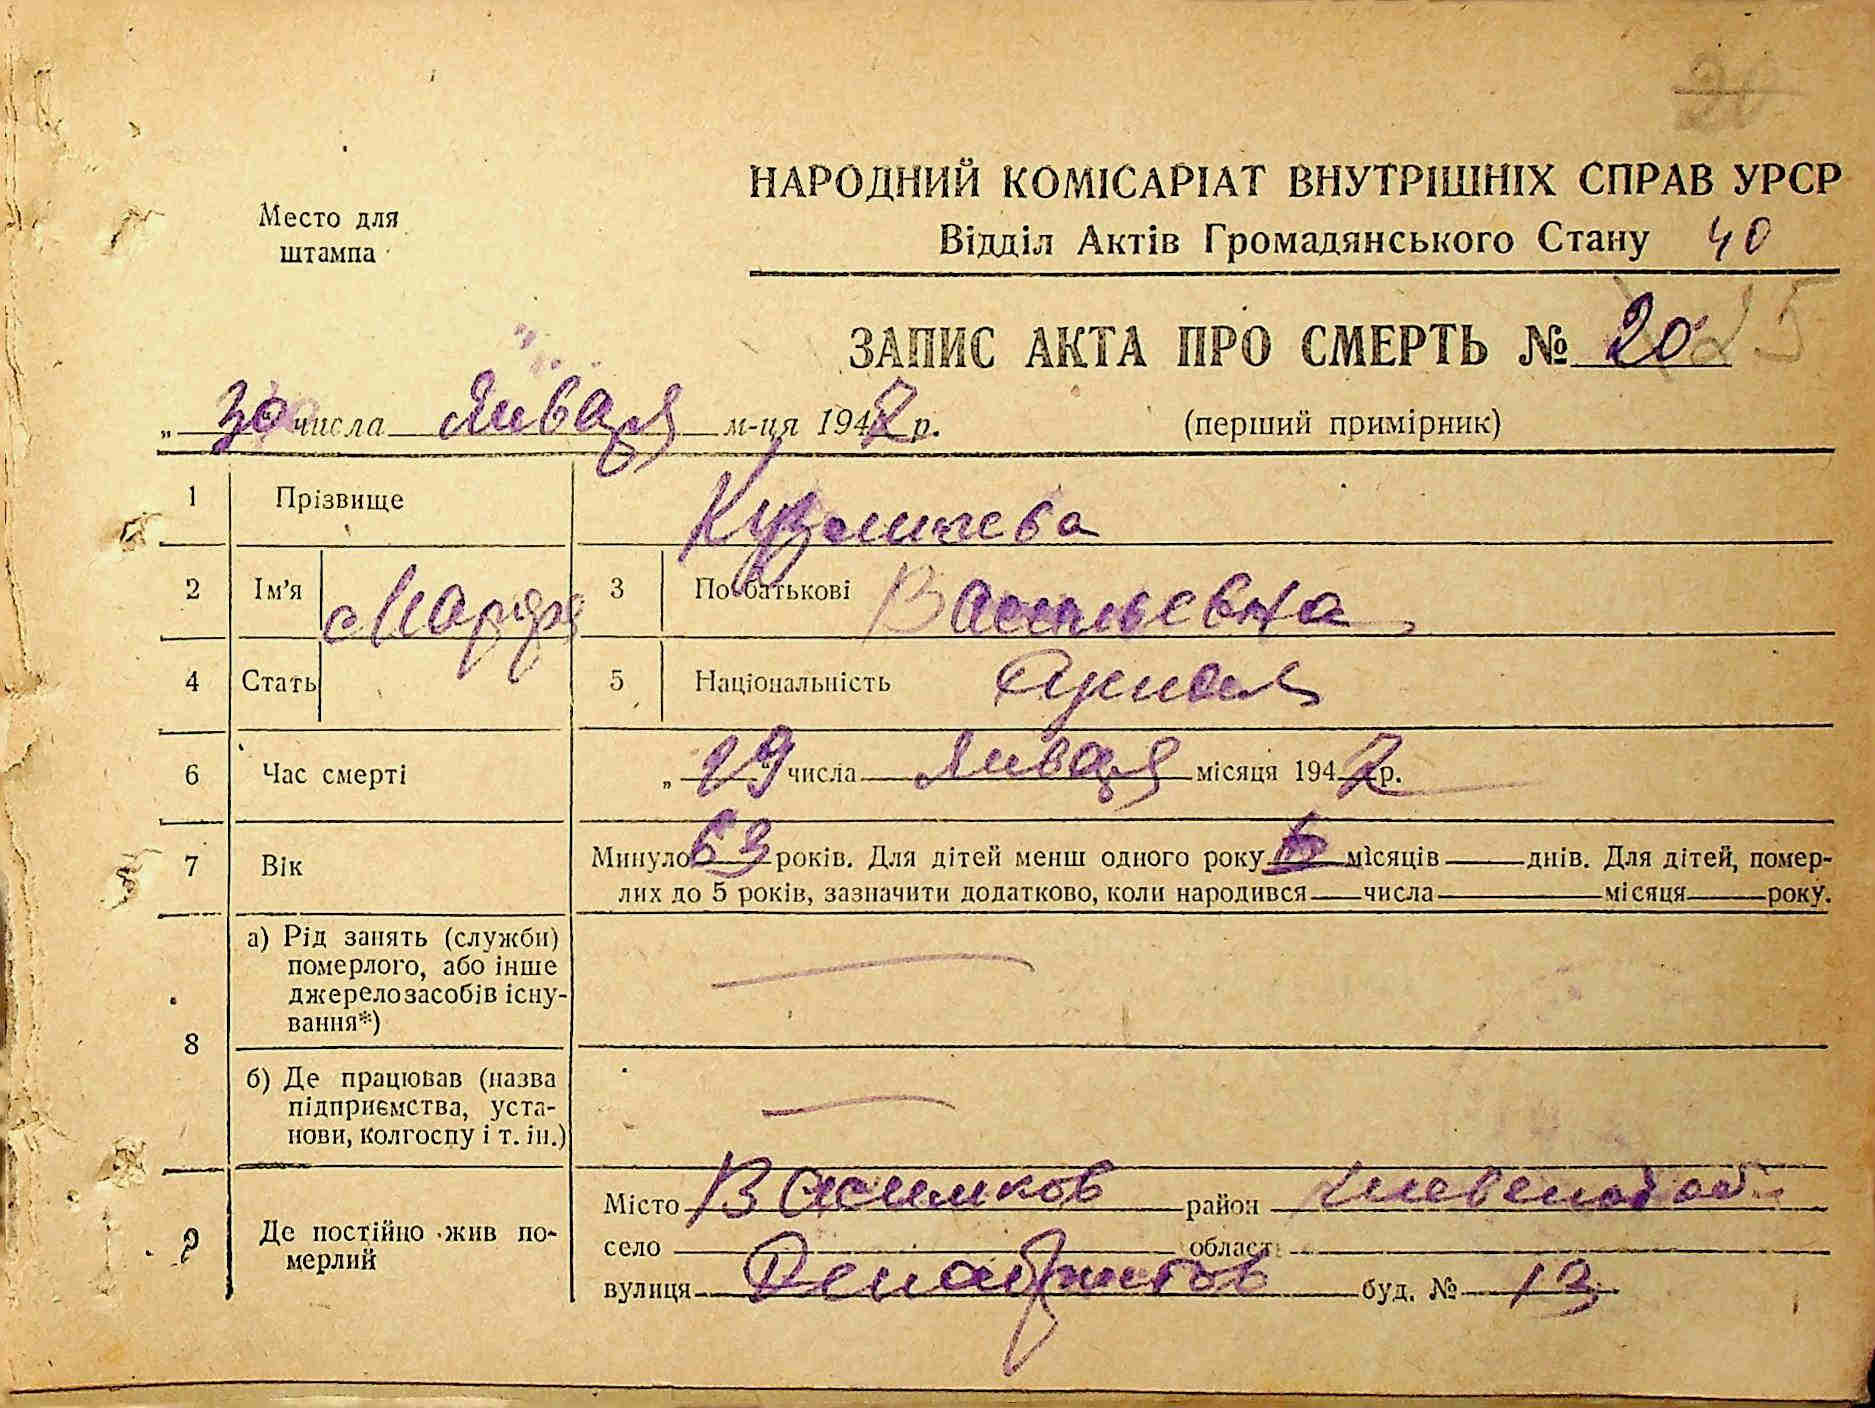 20
НАРОДНИЙ КОМІСАРІАТ ВНУТРІШНІХ СПРАВ УРСР
Место для
штампа
Відділ Актів Громадянського Стану 40
ЗАПИС АКТА ПРО СМЕРТЬ № 20 25
„ 30 числа Января м-ця 1942 р. (перший примірник)
1 Прізвище Кузмичева
2 Ім'я Марфа 3 По батькові Васильевна
4 Стать 5 Національність
6 Час смерті „ 29 " числа Января місяця 1942 р.
7 Вік Минуло 63 років. Для дітей менш одного року місяців днів. Для дітей, помер-
лих до 5 років, зазначити додатково, коли народився числа місяця року.
8 а) Рід занять (служби)
померлого, або інше
джерело засобів існу-
вання*)
б) Де працював (назва
підприємства, уста-
нови, колгоспу і т. ін.)
9 Де постійно жив по-
мерлий
Місто Васильков район Киевской об.
село область
вулиця Декабристов буд. № 13